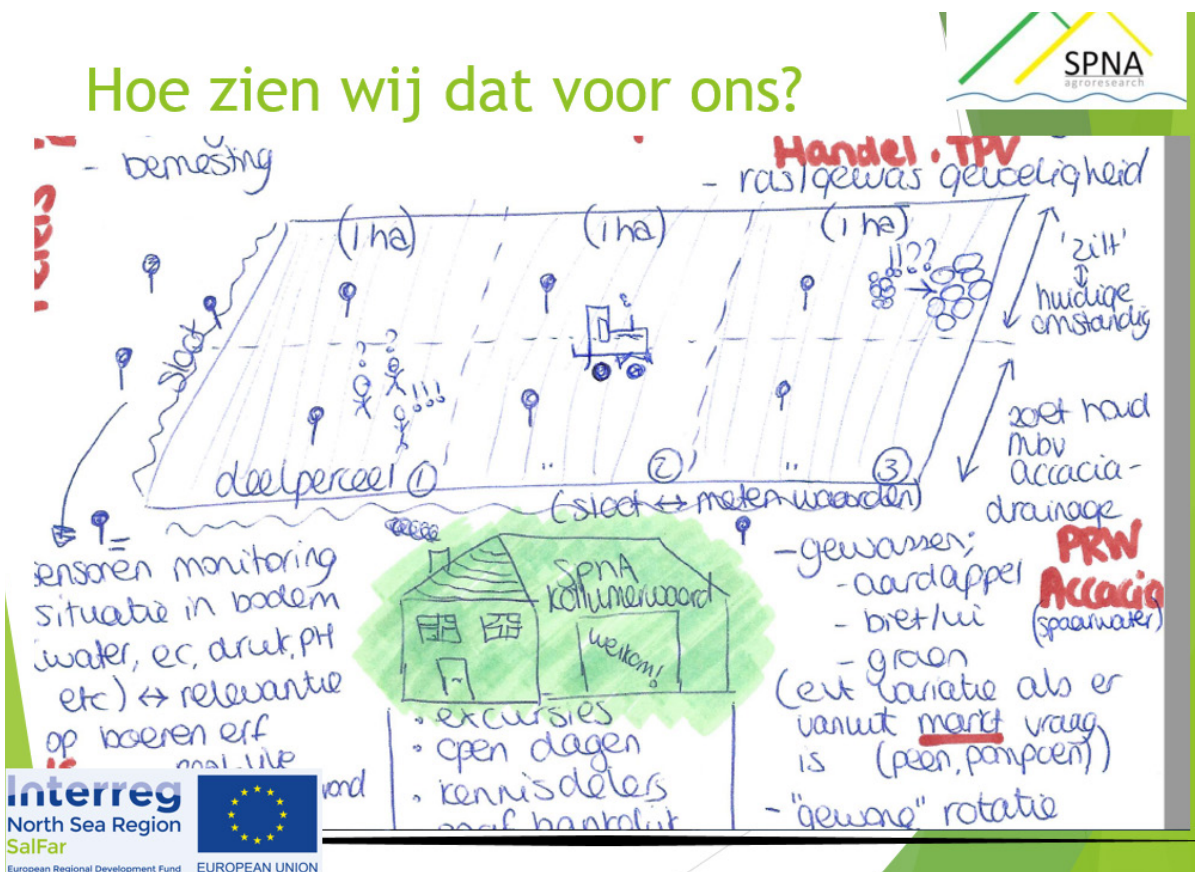 Hoe zien wij dat voor ons?
SPNA
agroresearch
- bemesting
Handel . TPV
- ras/gewas gevoeligheid
(1 ha)
(1 ha)
(1 ha)
!!??
'zilt'
huidige
omstandig
sloot
? ?
!!!
zoet houd
mbv
accacia-
drainage
deelperceel ①
" ②
" ③
(sloot ↔ meten waarden)
sensoren monitoring
situatie in bodem
water, ec, druk, PH
etc) ↔ relevantie
op boeren erf
SPNA
kollumerwaard
welkom!
• excursies
• open dagen
• kennisdelers
onafhankelijk
- gewassen;
- aardappel
- biet/ui
- graan
PRW
Accacia
(spaarwater)
(evt variatie als er
vanuit markt vraag
is (peen, pompoen))
- "gewone" rotatie
Interreg
North Sea Region
SalFar
European Regional Development Fund
EUROPEAN UNION